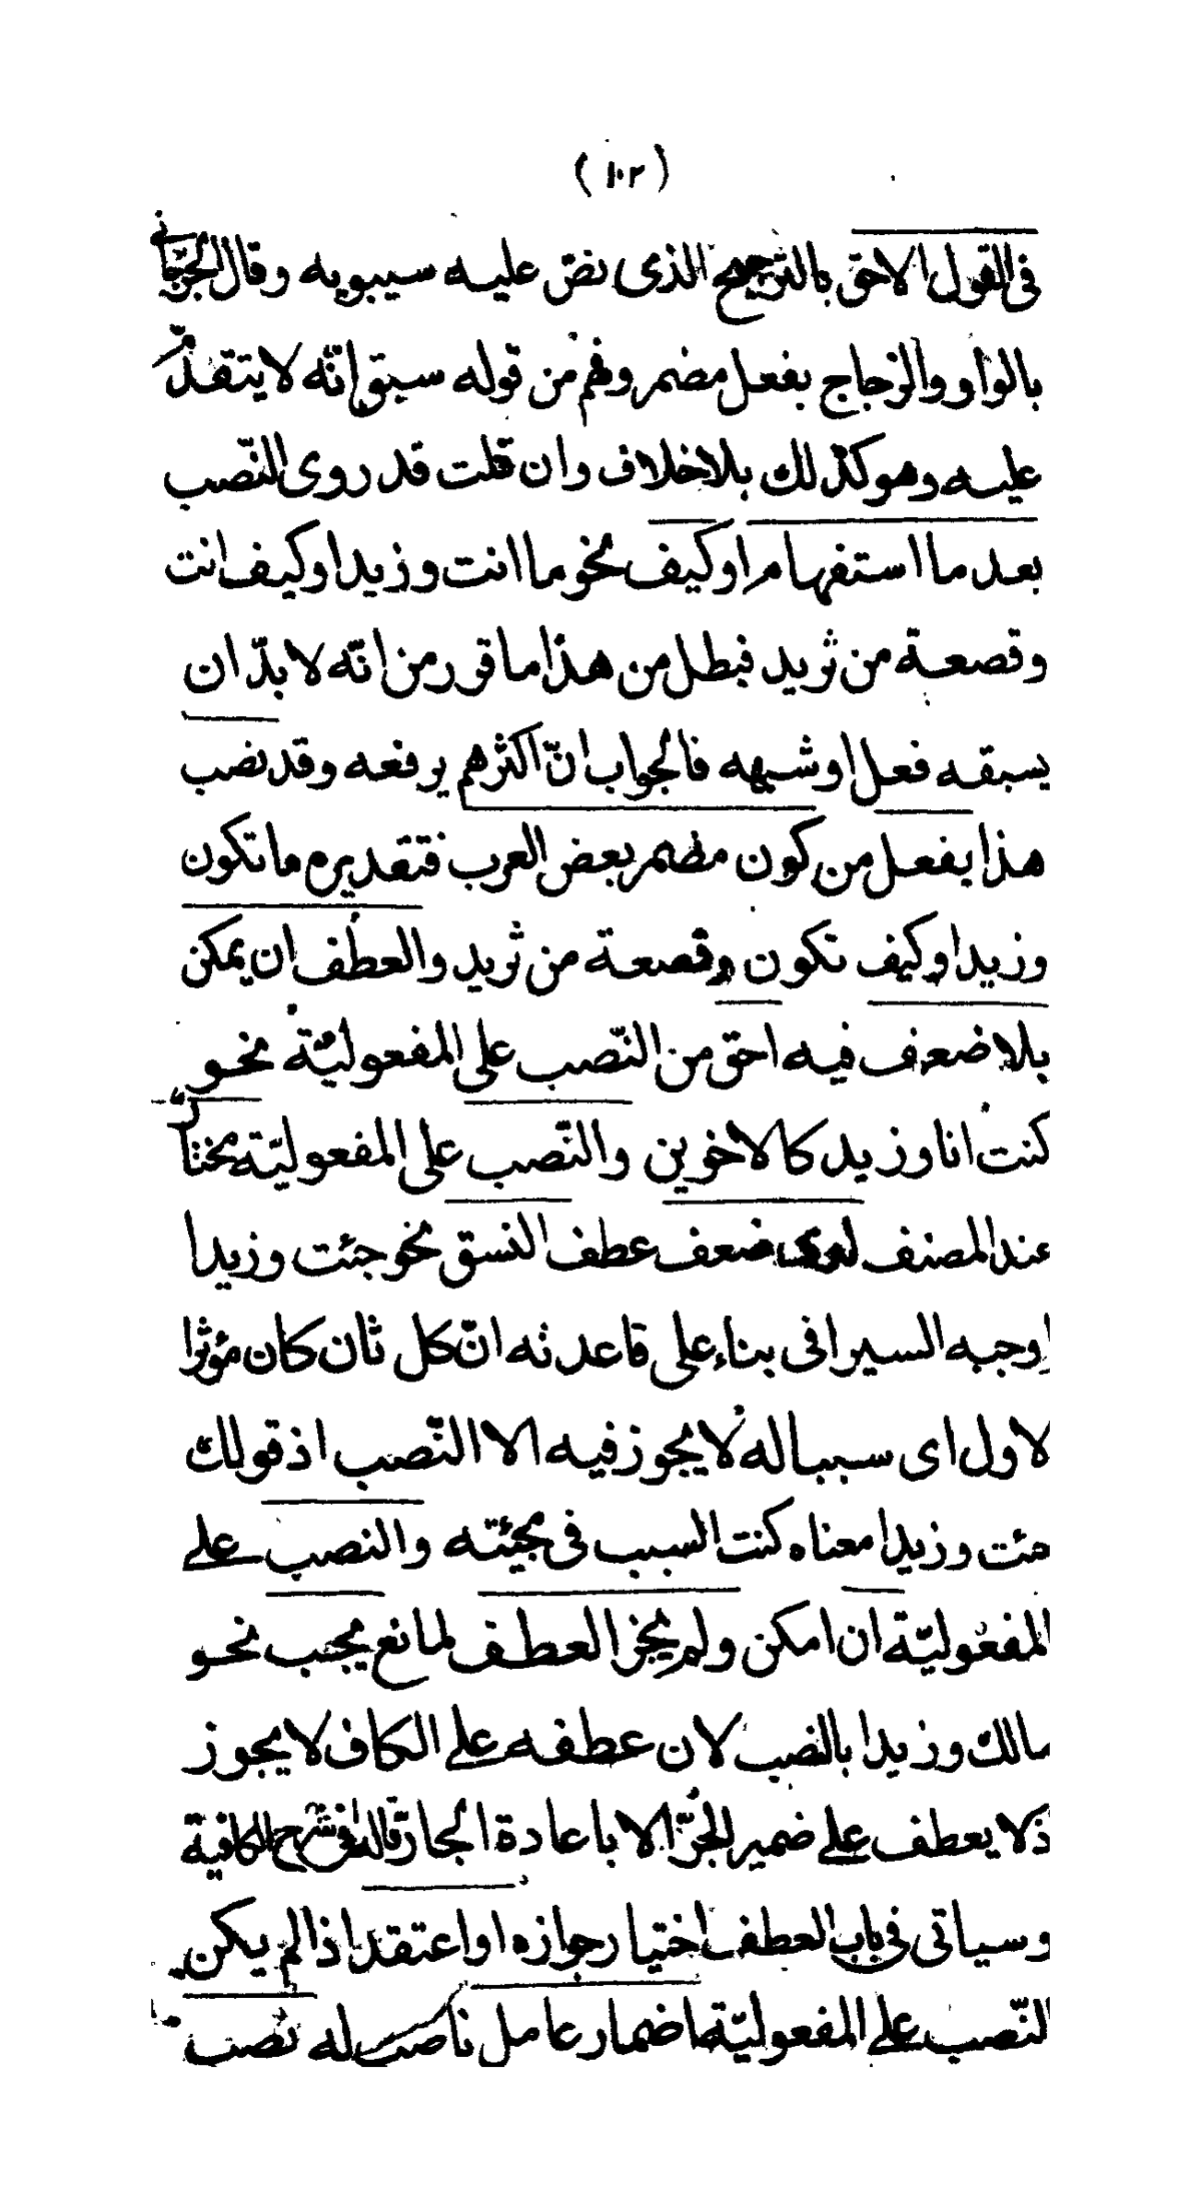 (١٠٢)
فى القول الاحق بالترجيح الذى نصّ عليه سيبويه وقال الجرجانى
بالواو والزجاج بفعل مضمر وفهم من قوله سبق انّه لا يتقدّم
عليه وهو كذلك بلا خلاف وان قلت قد روى النّصب
بعد ما استفهام او كيف نحو ما انت وزيدا وكيف انت
وقصعة من ثريد فبطل من هذا ما قرر من انّه لا بدّ ان
يسبقه فعل او شبهه فالجواب انّ اكثرهم يرفعه وقد نصب
هذا بفعل من كون مضمر بعض العرب فتقديره ما تكون
وزيدا وكيف تكون وقصعة من ثريد والعطف ان يمكن
بلا ضعف فيه احق من النّصب على المفعوليّة نحو
كنت انا وزيد كالاخوين والنّصب على المفعوليّة مختار
عند المصنف لدى ضعف عطف النسق نحو جئت وزيدا
اوجبه السيرافى بناء على قاعدته انّ كل ثان كان مؤثرا
لاول اى سببا له لا يجوز فيه الا النّصب اذ قولك
جئت وزيدا معناه كنت السبب فى مجيئته والنصب على
المفعوليّة ان امكن ولم يجز العطف لمانع يجب نحو
مالك وزيدا بالنصب لان عطفه على الكاف لا يجوز
ذلا يعطف على ضمير الجرّ الا باعادة الجار قاله فى شرح الكافية
وسياتى فى باب العطف اختيار جوازه او اعتقد اذا لم يكن
لنّصب على المفعوليّة اضمار عامل ناصب له نصب